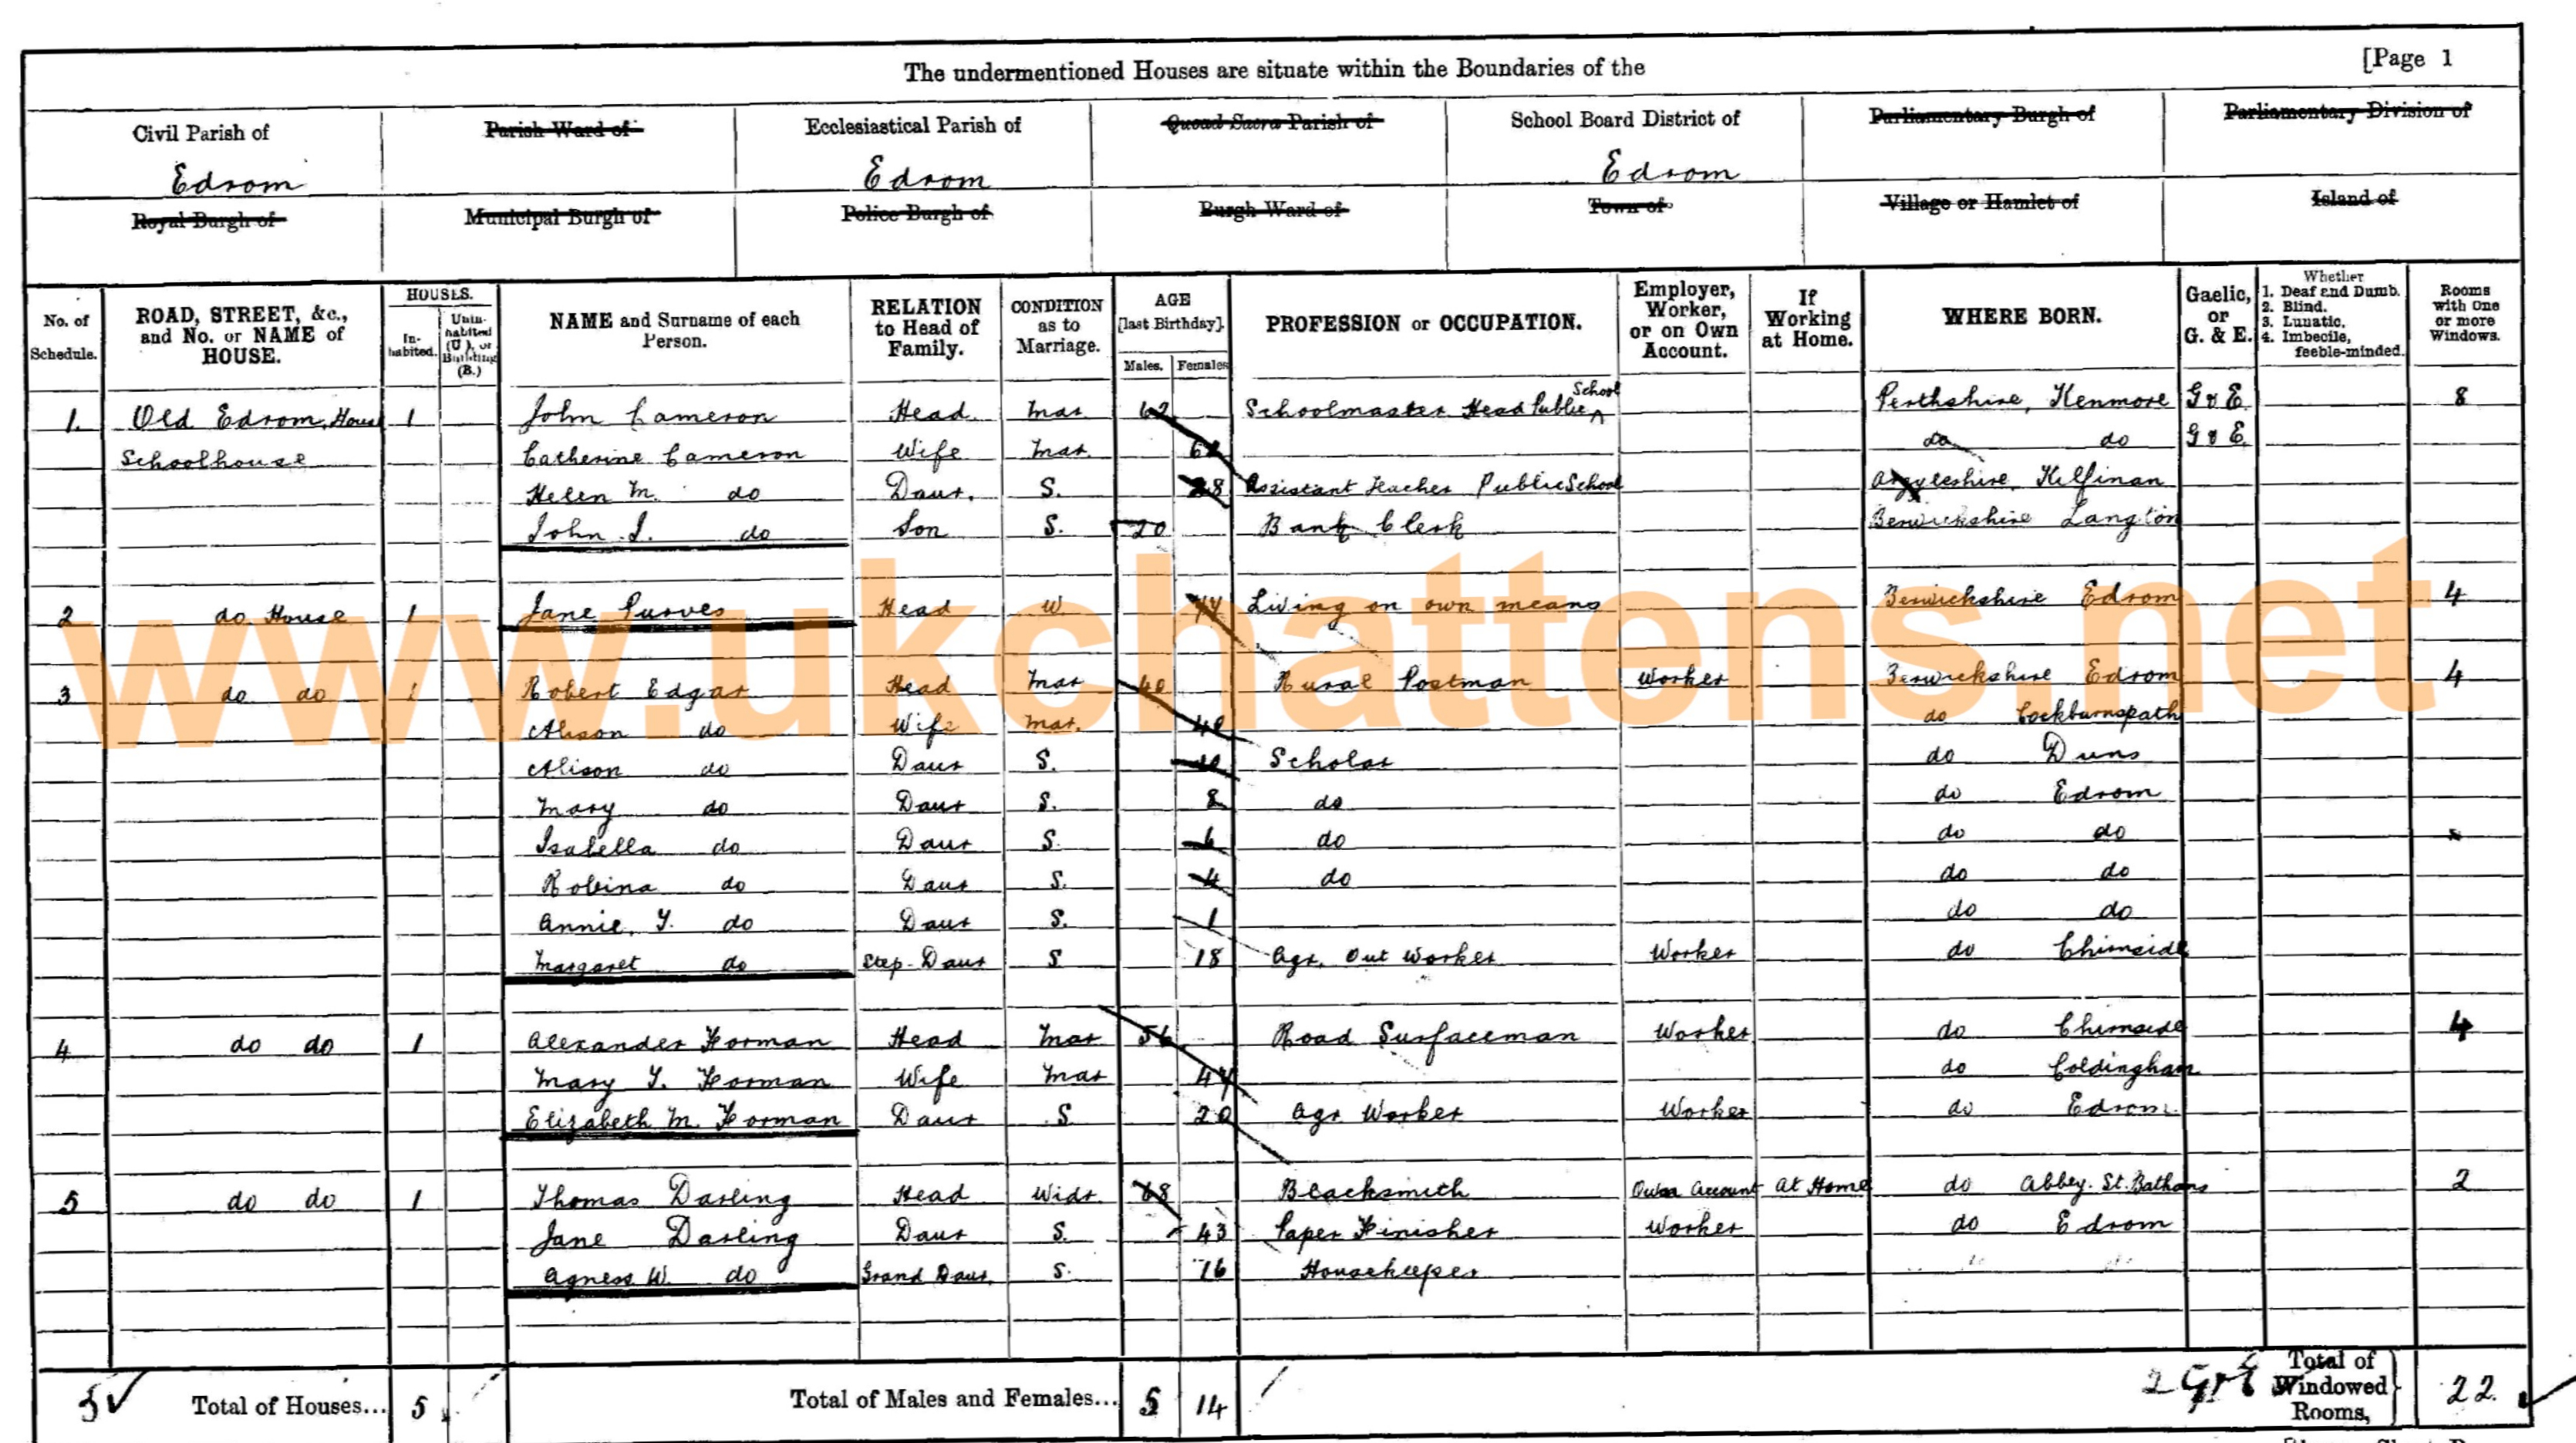 The undermentioned Houses are situate within the Boundaries of the [Page 1
Civil Parish of Parish Ward of Ecclesiastical Parish of Quoad Sacra Parish of School Board District of Parliamentary Burgh of Parliamentary Division of
Edrom Edrom Edrom
Royal Burgh of Municipal Burgh of Police Burgh of Burgh Ward of Town of Village or Hamlet of Island of
No. of Schedule. ROAD, STREET, &c., and No. or NAME of HOUSE. HOUSES. Inhabited. Uninhabited (U.), or Building (B.) NAME and Surname of each Person. RELATION to Head of Family. CONDITION as to Marriage. AGE [last Birthday]. Males. Females PROFESSION or OCCUPATION. Employer, Worker, or on Own Account. If Working at Home. WHERE BORN. Gaelic, or G. & E. Whether 1. Deaf and Dumb. 2. Blind. 3. Lunatic. 4. Imbecile, feeble-minded. Rooms with One or more Windows.
1. Old Edrom, House 1 John Cameron Head Mar 62 Schoolmaster Head Public School Perthshire, Kenmore G & E 8
Schoolhouse Catherine Cameron Wife Mar. do do G & E
Helen M. do Daur. S. 28 Assistant Teacher Public School Argyleshire, Kilfinan
John I. do Son S. 20 Bank Clerk Berwickshire Langton
2 do House 1 Jane Purves Head W Living on own means Berwickshire Edrom 4
3 do do 1 Robert Edgar Head Mar 40 Rural Postman Worker Berwickshire Edrom 4
Alison do Wife Mar. 40 do Cockburnspath
Alison do Daur S. 10 Scholar do Duns
Mary do Daur S. 8 do do Edrom
Isabella do Daur S. 6 do do do
Robina do Daur S. 4 do do do
Annie. Y. do Daur S. 1 do do
Margaret do Step-Daur S 18 Agr. Out Worker Worker do Chirnside
4 do do 1 Alexander Forman Head Mar 56 Road Surfaceman Worker do Chirnside 4
Mary Y. Forman Wife Mar 47 do Coldingham
Elizabeth M. Forman Daur S 20 Agr Worker Worker do Edrom
5 do do 1 Thomas Darling Head Widr. 68 Blacksmith Own Account At Home do Abbey. St. Bathans 2
Jane Darling Daur S. 43 Paper Finisher Worker do Edrom
Agness W. do Grand Daur. S. 16 Housekeeper " "
5 Total of Houses... 5 Total of Males and Females... 5 14 2 G & E Total of Windowed Rooms, 22
www.ukchattens.net